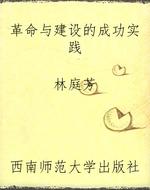 革命与建设的成功实
践
林庭芳
西南师范大学出版社